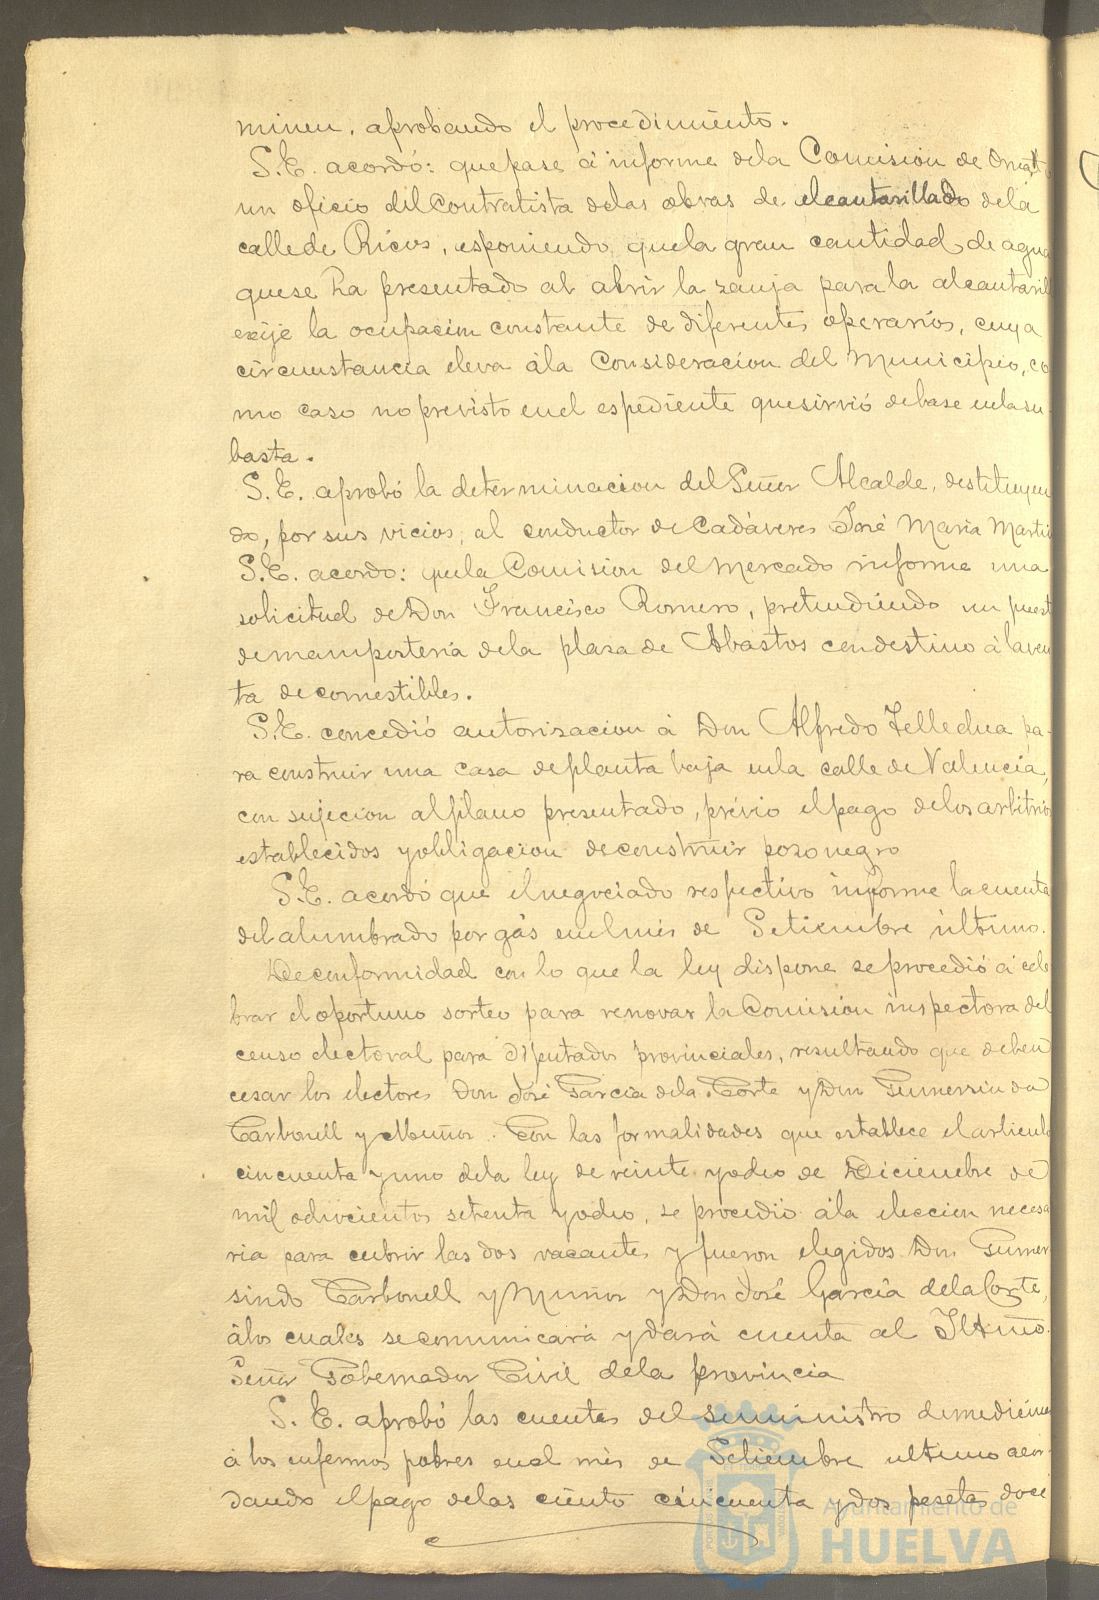 minen, aprobando el procedimiento.
S.E. acordó: que pase á informe dela Comision de Ornato
un oficio del Contratista delas obras de alcantarillado dela
calle de Ricos, esponiendo que la gran cantidad de agua
quese ha presentado al abrir la zanja para la alcantarill
exije la ocupacion constante de diferentes operarios, cuya
circunstancia eleva ála Consideracion del Municipio, co
mo caso no previsto en el espediente que sirvió de base en la su
basta.
S.E. aprobó la determinacion del Señor Alcalde, destituyen
do, por sus vicios, al conductor de Cadáveres José Maria Martin
S.E. acordo: que la Comision del Mercado informe una
solicitud de Don Francisco Romero, pretendiendo un puest
de mamposteria dela plaza de Abastos con destino á la ven
ta de comestibles.
S.E. concedió autorizacion á Don Alfredo pa-
ra construir una casa de planta baja en la calle de Valencia,
con sujecion al plano presentado, prévio el pago de los arbitrios
establecidos y obligacion de construir pozo negro
S.E. acordó que el negociado respectivo informe la cuenta
del alumbrado por gás en el mes de Setiembre último.
De conformidad con lo que la ley dispone se procedió á cele
brar el oportuno sorteo para renovar la Comision inspectora del
censo electoral para Diputados provinciales, resultando que deben
cesar los electores Don José Garcia dela Corte y Don Gumersindo
Carbonell y Muñoz. Con las formalidades que establece el articulo
cincuenta y uno dela ley de veinte y ocho de Diciembre de
mil ochocientos setenta y ocho, se procedió ála eleccion necesa
ria para cubrir las dos vacantes y fueron elegidos Don Gumer
sindo Carbonell y Muñoz y Don José Garcia dela Corte,
álos cuales se comunicará y dará cuenta al Iltmo.
Señor Gobernador Civil dela provincia
S.E. aprobó las cuentas del suministro de medicinas
á los enfermos pobres en el mes de Setiembre ultimo acor
dando el pago delas ciento cincuenta y dos pesetas doce
Ayuntamiento de
HUELVA